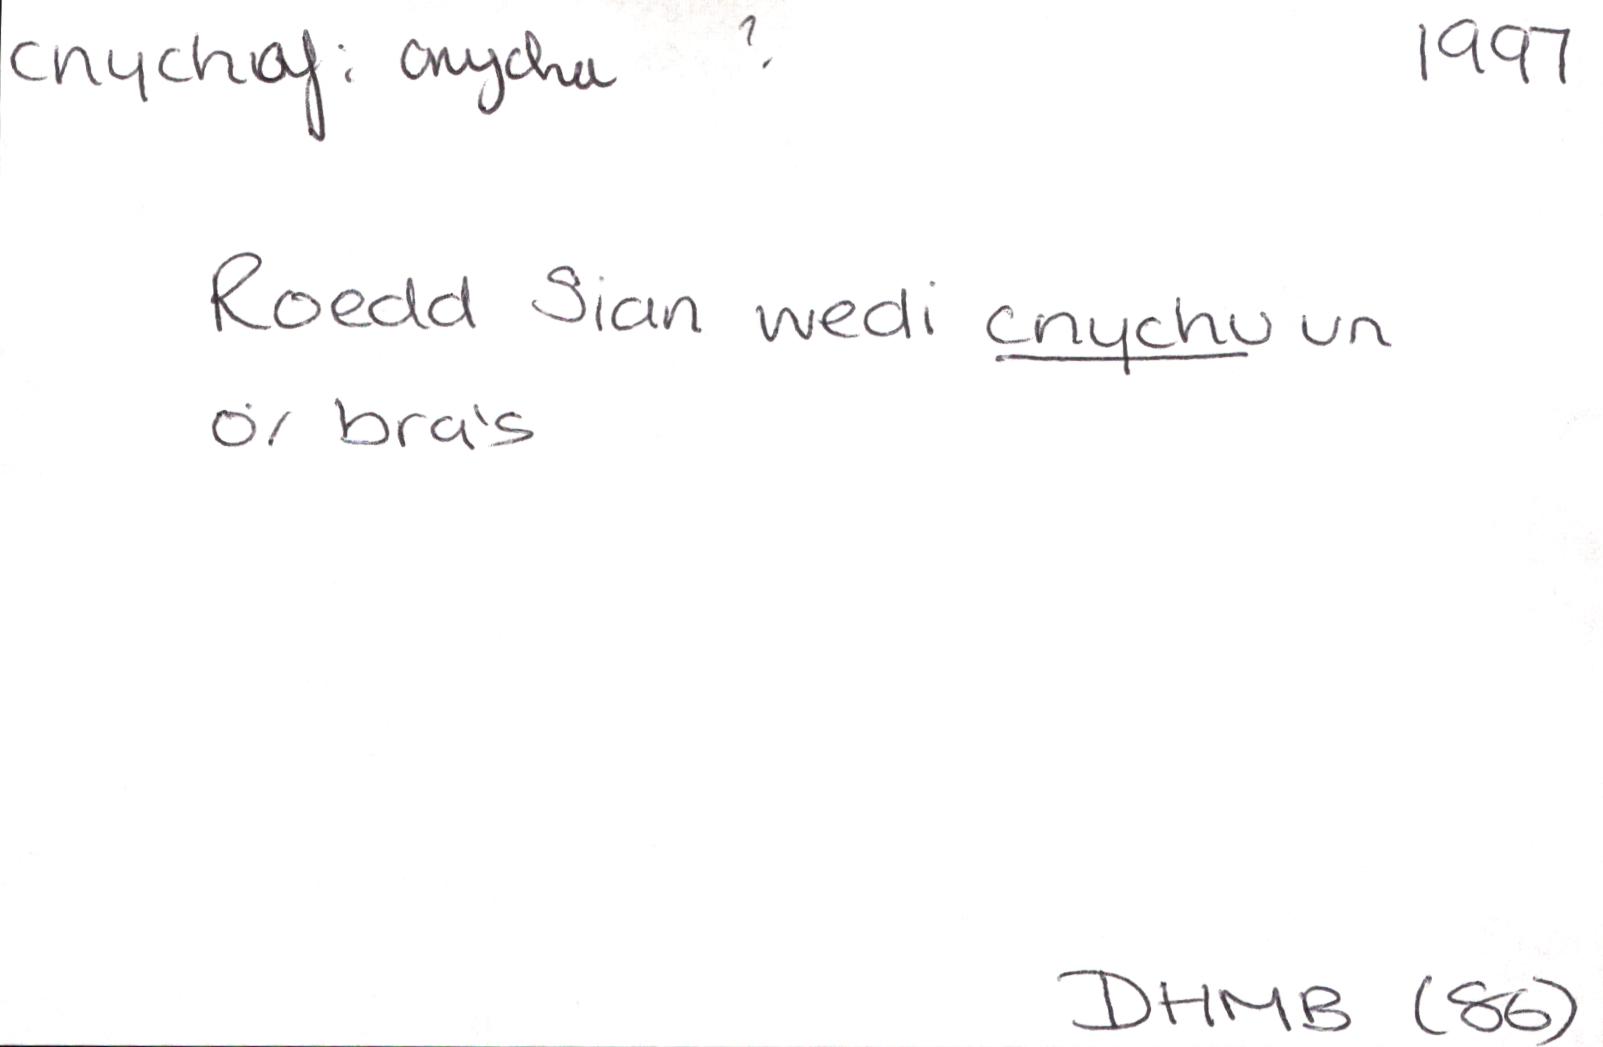 cnychaf: cnychu ? 1997
Roedd Sian wedi cnychu un
o'r bra's
DHMB (86)